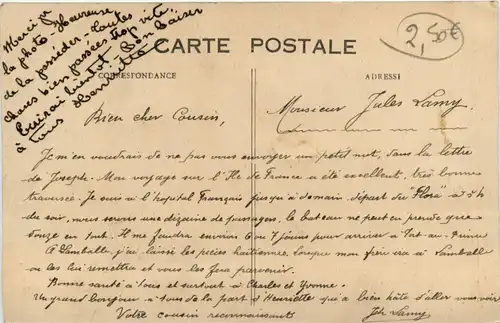 Merci pr
la photo. Heureuse
de la posséder. Toutes
choses bien passées trop vite.
Ecrirai bientôt. Bon Baiser
à tous Henriette
2,50€
CARTE POSTALE
CORRESPONDANCE
ADRESSE
Bien cher Cousin,
Monsieur Jules Lamy.
Je m'en voudrais de ne pas vous envoyer un petit mot, dans la lettre
de Joseph. Mon voyage sur l'Ile de France a été excellent, très bonne
traversée. Je suis à l'hopital Français jusqu'à demain. départ du "Flora" à 5h
du soir, nous serons une dizaine de passagers, le bateau ne peut en prendre que
douze en tout. Il me faudra environ 6 ou 7 jours pour arriver à Port-au-Prince
A Lamballe, j'ai laissé les pièces haïtiennes, lorsque mon frère ira à Lamballe
on les lui remettra et vous les fera parvenir.
Bonne santé à tous et surtout à Charles et Yvonne.
Un grand bonjour à tous de la part d'Henriette qui a bien hâte d'aller vous voir
Votre cousin reconnaissant
Jh Lamy